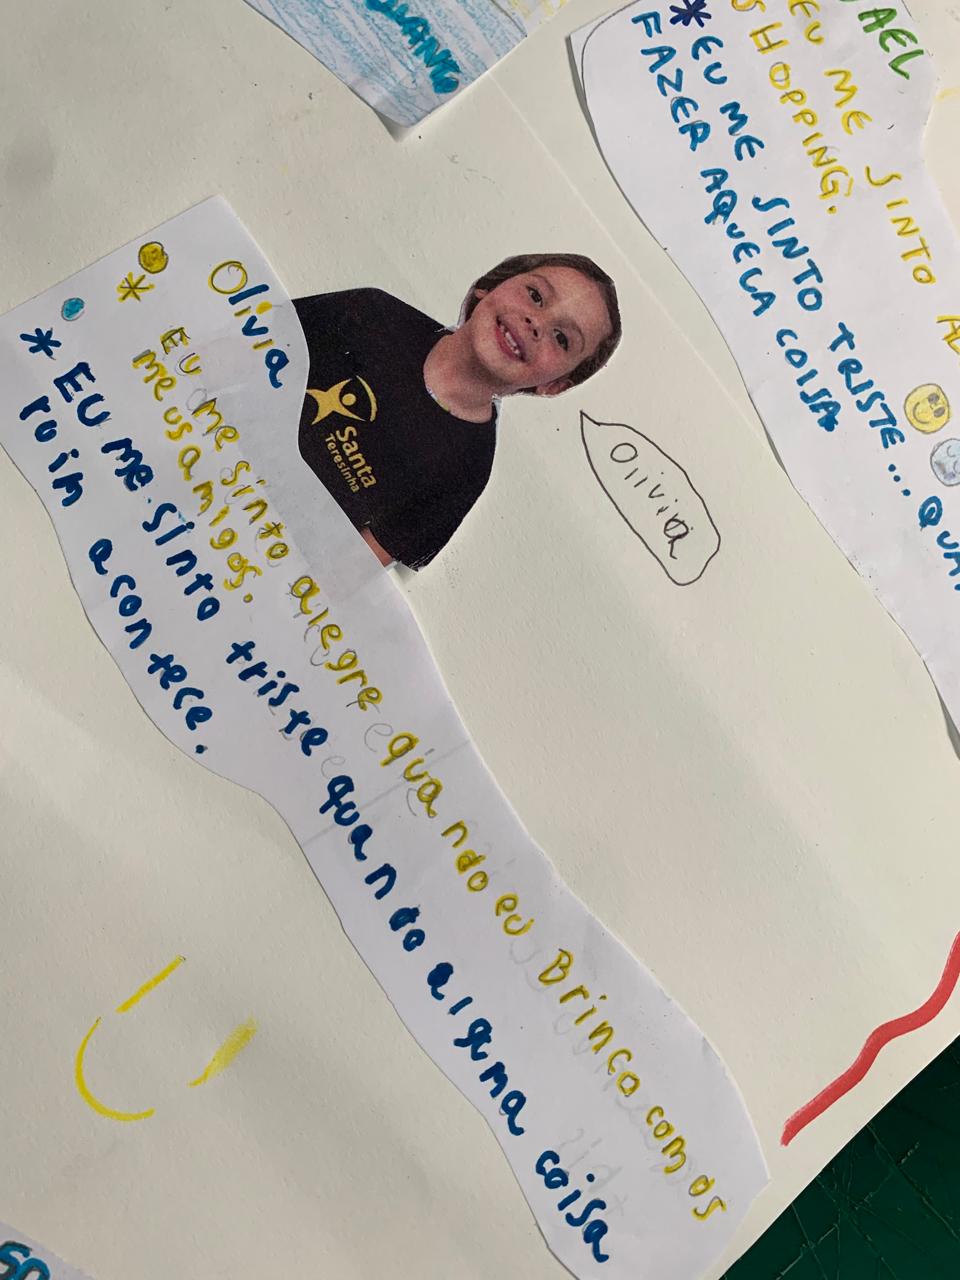 QUANTO
AEL
EU ME SINTO
SHOPPING.
* EU ME SINTO TRISTE... QUA
FAZER AQUELA COISA
Olivia
* Eu me sinto alegre quando eu Brinco com os
meus amigos.
* EU me sinto triste quando alguma coisa
ruim acontece.
Santa
Teresinha
Olivia